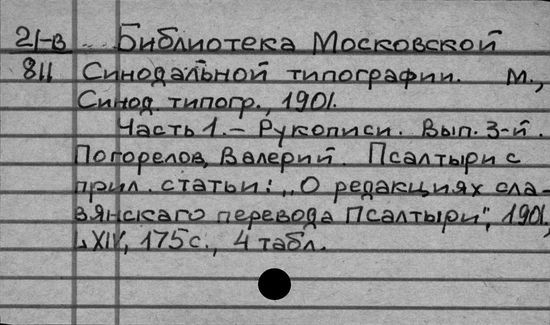 21-в Библиотека Московской
811 Синодальной типографии. М.,
Синод. типогр., 1901.
Часть 1. – Рукописи. Вып. 3-й.
Погорелов, Валерий. Псалтыри с
прил. статьи: „О редакциях сла-
вянскаго перевода Псалтыри", 1901,
LXIV, 175 с., 4 табл.